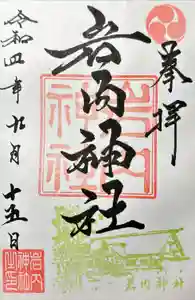 奉拝
岩内神社
令和四年九月
十五日
岩内神社
岩内神社之印
岩内神社